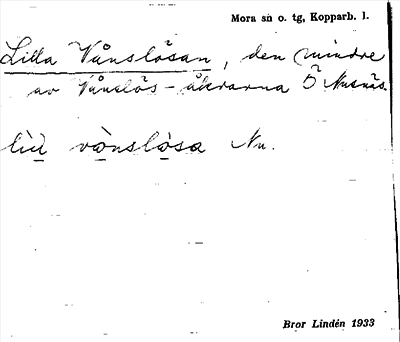 Mora sn o. tg, Kopparb. l.
Lilla Vånslösan, den mindre
av Vånslös-åkrarna Ö Nusnäs.
vȯnslȯsa Nu.
Bror Lindén 1933